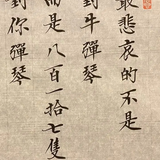 最悲哀的不是
對牛彈琴
而是八百一拾七隻
對你彈琴